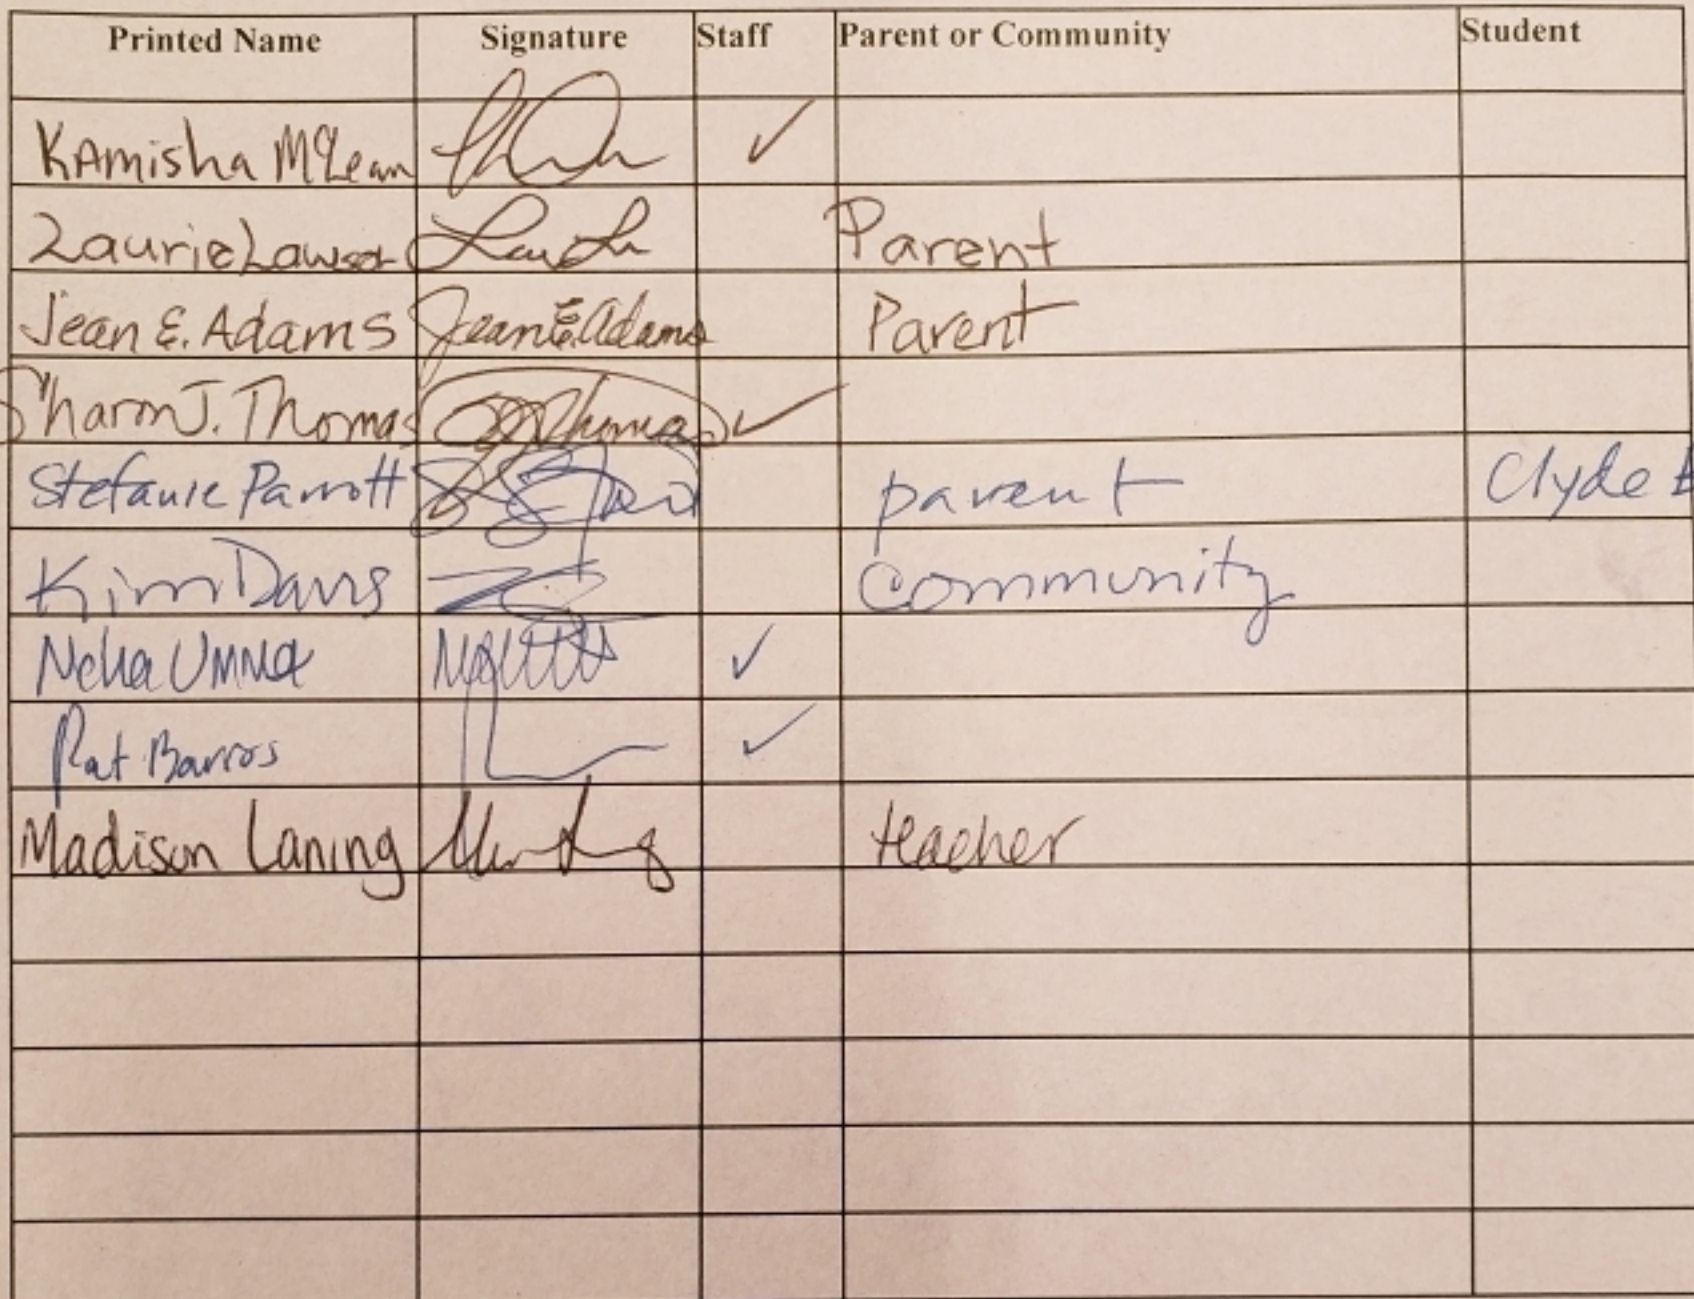 Printed Name Signature Staff Parent or Community Student
KAmisha McLean ✓
Laurie Lawson Parent
Jean E. Adams Jean E. Adams Parent
Sharon J. Thomas ✓
Stefanie Parrott parent Clyde
Kim Davis Community
Neha ✓
Pat Barros ✓
Madison Laning teacher